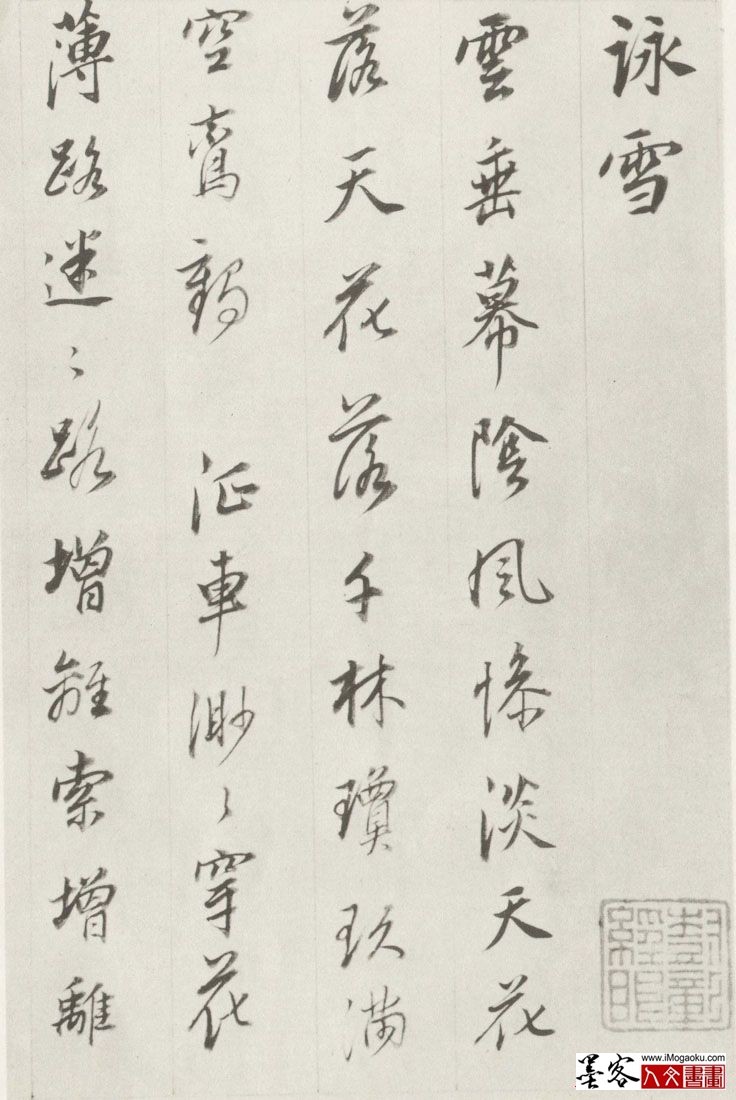 詠雪
雲垂幕陰風慘淡天花
落天花落千林瓊玖滿
空鸞鶴 征車渺〻穿花
薄路迷〻路增離索增離
墨客 www.iMogaoku.com
人文書畫